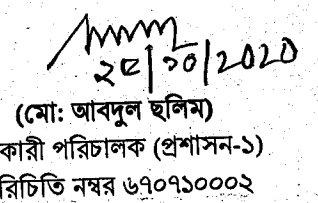 ২৫/১০/2020
(মো: আবদুল ছলিম)
কারী পরিচালক (প্রশাসন-১)
রিচিতি নম্বর ৬৭০৭১০০০২